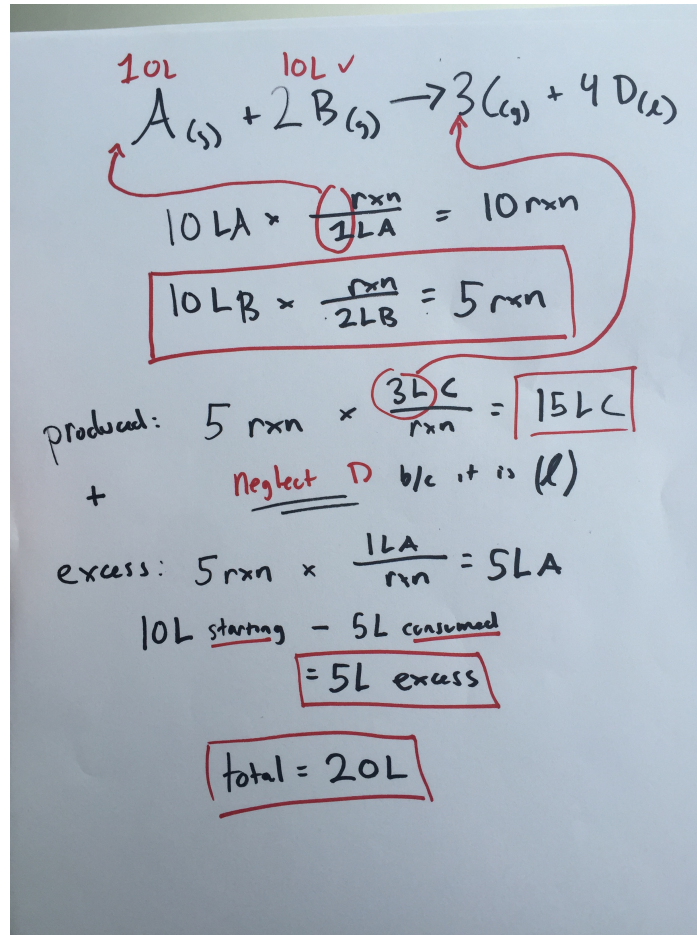 10L 10L ✓
A(g) + 2 B(g) → 3C(g) + 4 D(l)
10 LA × rxn/1LA = 10 rxn
10 LB × rxn/2LB = 5 rxn
produced: 5 rxn × 3L C/rxn = 15 L C
+ Neglect D b/c it is (l)
excess: 5 rxn × 1LA/rxn = 5LA
10L starting - 5L consumed
= 5L excess
total = 20L